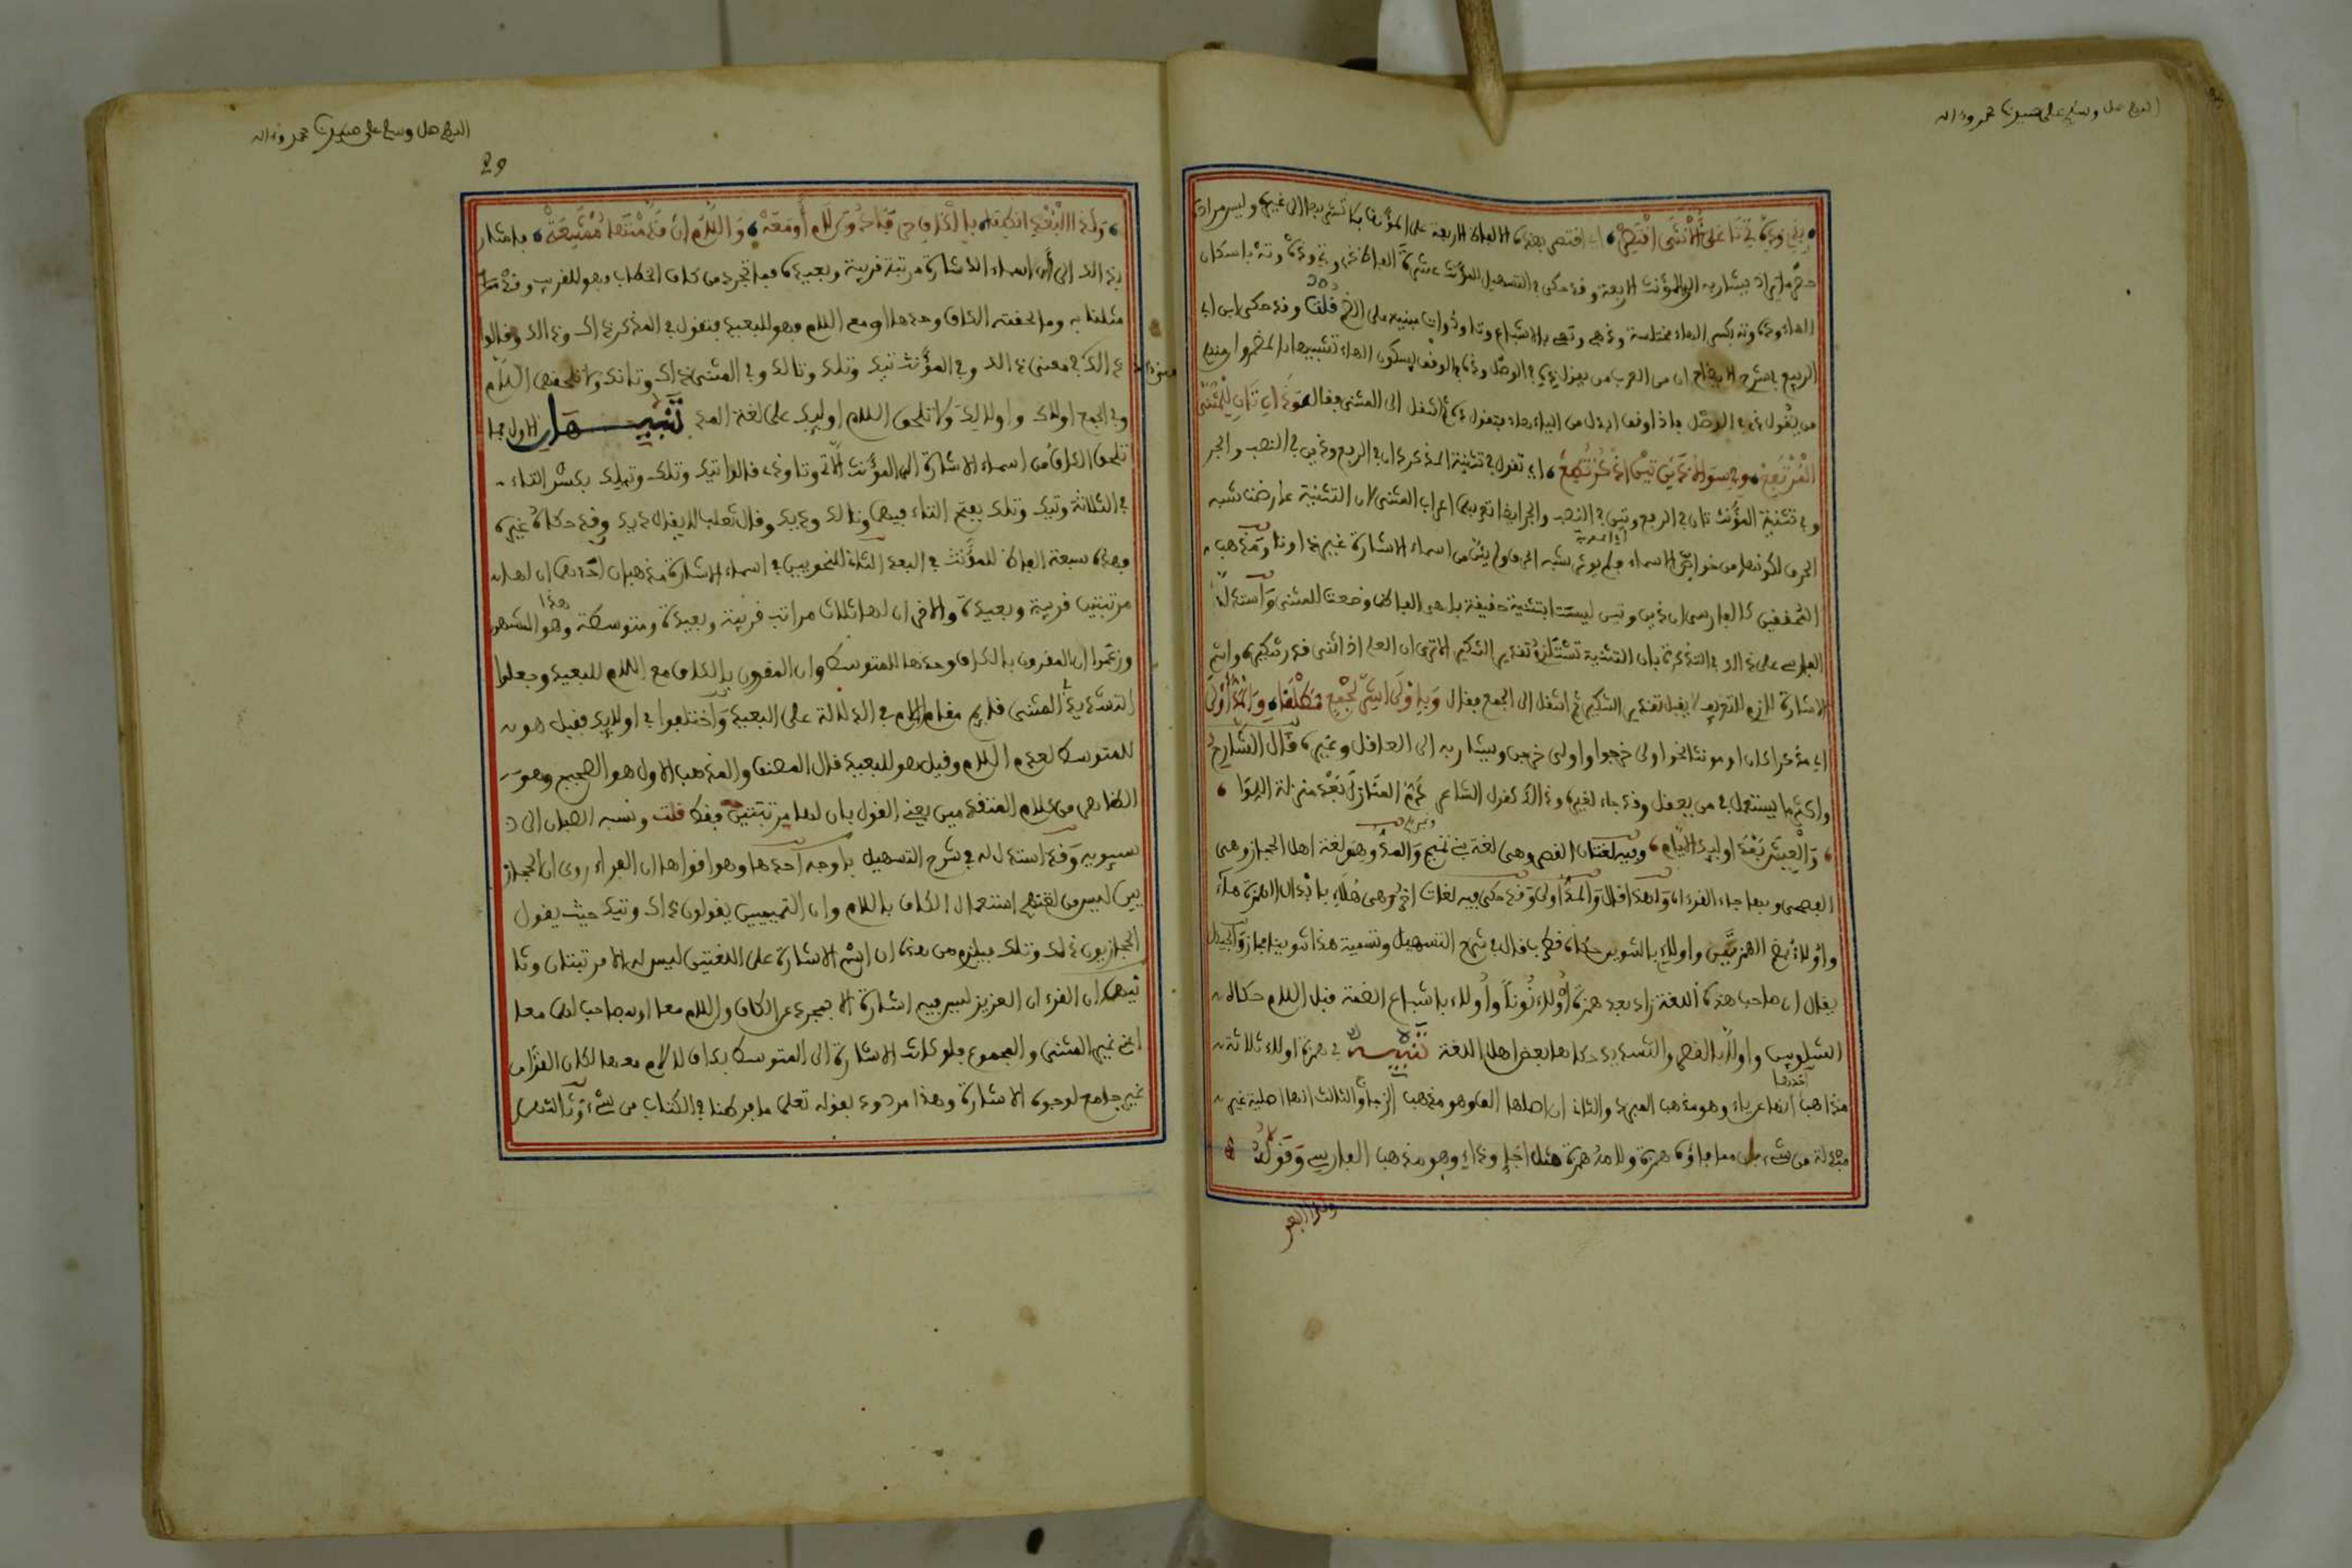 اللهم صل وسلم على سيدنا محمد وءاله
بذي وذه تي تا على الأنثى اقتصر اي اقتصر بهذه الالفاظ الاربعة على المؤنث فلا تستعملها الى غيره وليس مراده
حصر ما يراد بيشار به الى المؤنث الاربعة وقد حكى في التسهيل للمؤنث عشرة الفاظ ذي وتي وذه وته باسكان
الهاء وذه وته بكسر الهاء مختلسة وذهي وتهي بالاشباع وتا وذات مبنية على الضم قلت وقد حكى ابن ابي
الربيع في شرح الايضاح ان من العرب من يقول ذي في الوصل وذه في الوقف بسكون الهاء تشبيها بالمضمر ومنهم
من يقول ذي في الوصل فاذا وقف ابدل من الياء هاء فيقول ذه ثم انتقل الى المثنى فقال وذان تان للمثنى
المرتفع وفي سواه ذين تين اذكر تطع اي تقول في تثنية المذكر ذان في الرفع وذين في النصب والجر
وفي تثنية المؤنث تان في الرفع وتين في النصب والجر اعراب المثنى لان التثنية عارضت شبه
الحرف لكونها من خواص الاسماء فلم يوثر شبه الحرف ولم يثن من اسماء الاشارة غير ذا وتا ومذهب
المحققين كالفارسي ان ذين وتين ليست بتثنية حقيقة بل هي الفاظ وضعت للمثنى واستدل
الفارسي على ذلك في التذكرة بان التثنية تستلزم تقدير التنكير الا ترى ان العلم اذا ثني قدر تنكيره واسم
الاشارة لازم التعريف لا يقبل تقدير التنكير ثم انتقل الى الجمع فقال وباولى اشر لجمع مطلقا والمد اولى
اي مذكرا كان او مونثا نحو اولى خرجوا واولى خرجن ويشار به الى العاقل وغيره قال الشارح
واكثر ما يستعمل في من يعقل وقد جاء لغيره وذلك كقول الشاعر ذم المنازل بعد منزلة اللوا
والعيش بعد اولئك الايام وفيه لغتان القصر وهي لغة بني تميم والمد وهو لغة اهل الحجاز وهي
الفصحى وبها جاء القرءان ولهذا قال والمد اولى وقد حكى فيه لغات اخر وهي هلاء بابدال الهمزة هاء
واولاء بضم الهمزتين واولاء بالتنوين حكاه قطرب قال في شرح التسهيل وتسمية هذا تنوينا مجاز والجيد ان
يقال ان صاحب هذه اللغة زاد بعد همزة اولاء نونا وأولاء باشباع الضمة قبل اللام حكاه
الشلوبين واولا بالقصر والتشديد حكاها بعض اهل اللغة تنبيه في همزة اولاء ثلاثة
مذاهب احدها انها عن ياء وهو مذهب المبرد والثاني ان اصلها الف وهو مذهب الزجاج والثالث انها اصلية غير
مبدلة من شيء بل مما فاؤه همزة ولامه همزة مثل وهو مذهب الفارسي وقوله
ولدا البعد
اللهم صل وسلم على سيدنا محمد وءاله
29
ولدى البعد انطقا بالكاف حرفا دون لام أو معه واللام ان قدمت ها ممتنعة فاشار
بذلك الى ان اسماء الاشارة مرتبة قريبة وبعيدة فما تجرد من كاف الخطاب فهو للقريب وقد
مثلنا به وما لحقته الكاف وحدها او مع اللام فهو للبعيد فتقول في المذكر ذاك وذلك وقالوا
ذالك في معنى ذلك وفي المؤنث تيك وتلك وتالك وفي المثنى ذانك وتانك ولا تلحقه اللام
وفي الجمع اولاك واولالك ولا تلحق اللام اولئك على لغة المد تنبيهان الاول انما
تلحق الكاف من اسماء الاشارة الى المؤنث الا تي وتا وذي قالوا تيك وتلك وتيلك بكسر التاء
في الثلاثة وتيك وتلك بفتح التاء فيهما وتالك وذيك وقال ثعلب لا يقال ذيك وقد حكاه غيره
فهذه سبعة الفاظ للمؤنث في البعد الثاني للنحويين في اسماء الاشارة مذهبان احدهما ان لها
مرتبتين قريبة وبعيدة والاخر ان لها ثلاث مراتب قريبة وبعيدة ومتوسطة وهذا هو المشهور
وزعموا ان المقرون بالكاف وحدها للمتوسط وان المقرون بالكاف مع اللام للبعيد وجعلوا
التشديد في المثنى قايم مقام اللام في الدلالة على البعيد واختلفوا في اولئك فقيل هو
للمتوسط لعدم اللام وقيل هو للبعيد قال المصنف والمذهب الاول هو الصحيح وهو
الظاهر من كلام المتقدمين يعني القول بان لها مرتبتين فقط قلت ونسبه الصفار الى
سيبويه وقد استدل له في شرح التسهيل باوجه احدها وهو اقواها ان الفراء روى ان الحجاز
يين ليس من لغتهم استعمال الكاف بلا لام وان التميميين يقولون ذاك وتيك حيث يقول
الحجازيون ذلك وتلك فيلزم من هذا ان اسم الاشارة على اللغتين ليس له الا مرتبتان وثا
نيها ان القرءان العزيز ليس فيه اشارة الا بمجرد عن الكاف واللام معا او بمصاحب لهما معا
اعني غير المثنى والمجموع فلو كانت الاشارة الى المتوسط بكاف لا لام معها لكان القرءان
غير جامع لوجوه الاشارة وهذا مردود بقوله تعلى ما فرطنا في الكتاب من شيء وثالثها